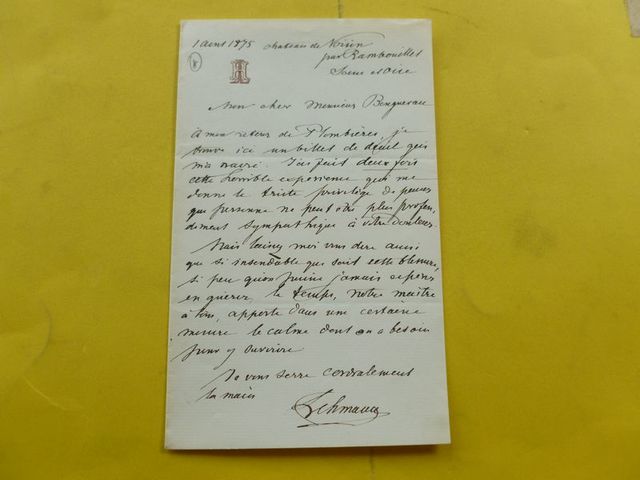 1 Aout 1875 chateau de Voisin
par Rambouillet
Seine et Oise
Mon cher Monsieur Bouguereau
à mon retour de Plombières, je
trouve ici un billet de deuil qui
m'a navré. J'ai fait deux fois
cette horrible expérience qui me
donne le triste privilège de penser
que personne ne peut être plus profon-
dément sympathique à votre douleur.
Mais laissez moi vous dire aussi
que si insondable que soit cette blessure,
si peu qu'on puisse jamais espérer
en guérir le temps, notre maître
à tous, apporte dans une certaine
mesure le calme dont on a besoin
pour y survivre
Je vous serre cordialement
la main
Lehmann